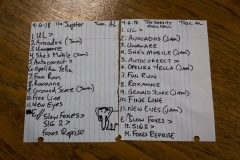 4-6-18 The Jupiter Tusc. AL
1. UL >
2. Avocados (Jam)
3. Unaware
4. She's Mobile (Jam)
5. Autocorrect >
6. Opelika Yella
7. Fun Run
8. Roxanne
9. Ground Score (Jam)
10. Fine Line
11. New Eyes
E: Slow Foxes >
SIG 2 >
Foxes Reprise
4-6-18 Tusc, AL
1. UL >
2. Avocados (Jam)
3. Unaware
4. She's Mobile (Jam)
5. Autocorrect >
6. Opelika Yella (Jam)
7. Fun Run
8. Roxanne
9. Ground Score (Jam)
10. Fine Line
11. New Eyes (Jam)
E:
12. Slow Foxes >
13. SIG 2 >
14. Foxes Reprise